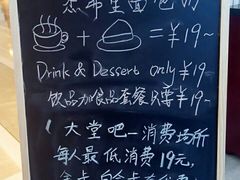 杰布里面包房
+ = ¥19~
Drink & Dessert only ¥19
饮品加食品套餐只需¥19~
"大堂吧一消费场所
每人最低消费19元,